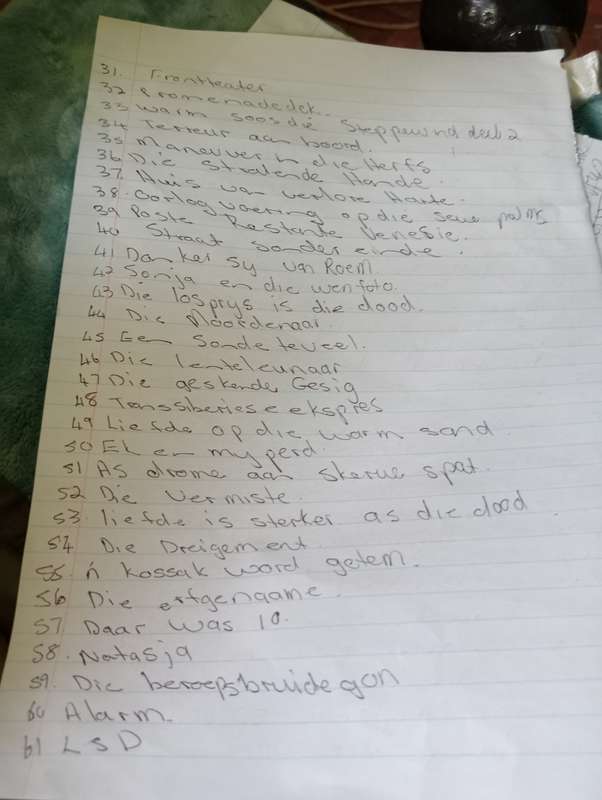 31. Frontteater
32 Promenadedek..
33 Warm soos die Steppewind deel 2
34 Terreur aan boord.
35 Maneuver in die Herfs
36 Die Stralende Hande.
37. Huis van verlore Harte.
38. Oorlogvoering op die seue palms
39 Poste Restante Venesie.
40 Straat sonder einde.
41 Donker sy van Roem
42 Sonja en die wenfoto.
43 Die losprys is die dood.
44 Die Moordenaar.
45 Een Sonde teveel.
46 Die lenteleunaar
47 Die geskende Gesig
48 Transsiberiese ekspres
49 Liefde op die warm sand
50 Ek en my perd.
51 As drome aan skerwe spat.
52 Die Vermiste.
53. liefde is sterker as die dood
54 Die Dreigement.
55. 'n Kossak word getem.
56 Die erfgename.
57 Daar was 10.
58. Natasja
59. Die beroepsbruidegom
60 Alarm.
61 LSD